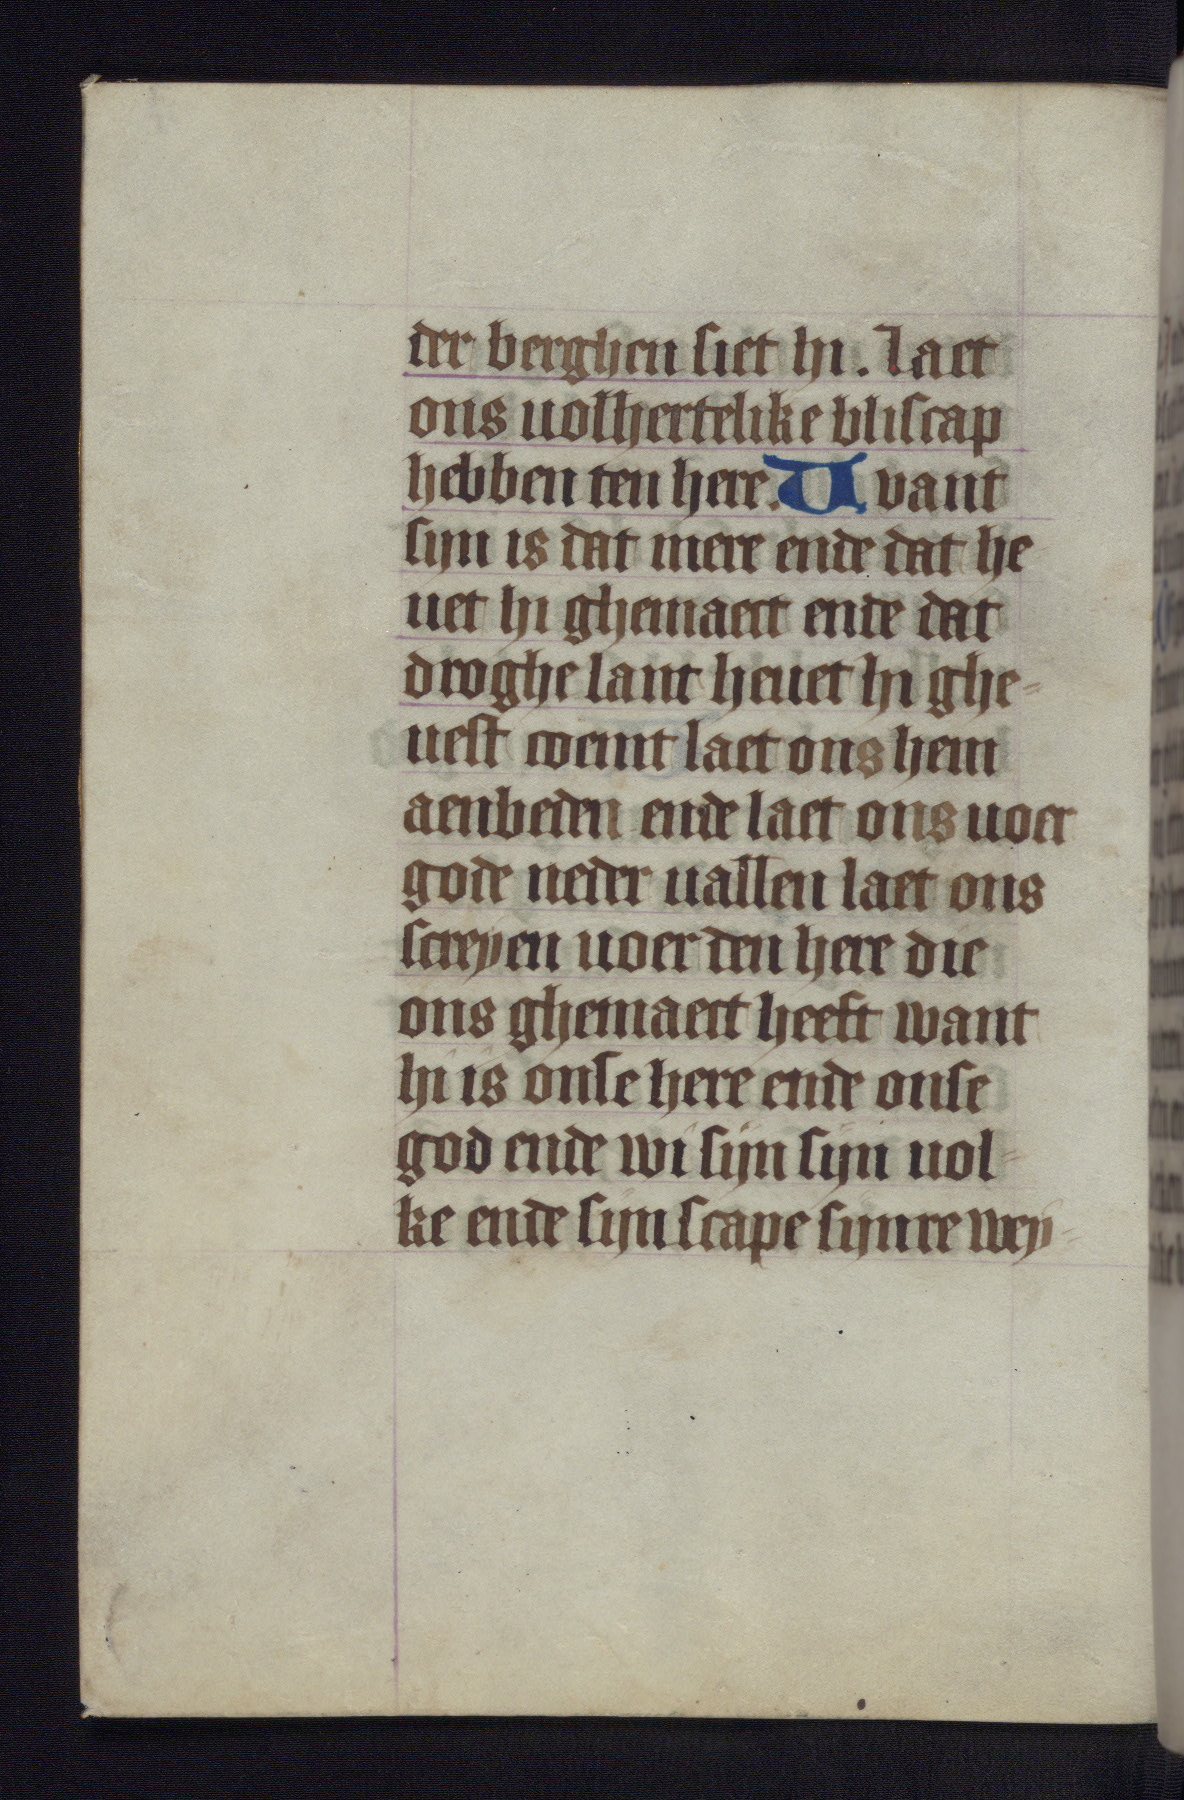 der berghen siet hi. Laet
ons uolhertelike bliscap
hebben ten here. Uvant
sijn is dat mere ende dat he
uet hi ghemaect ende dat
droghe lant heuet hi ghe-
uest coemt laet ons hem
aenbeden ende laet ons uoer
gode neder uallen laet ons
screyen uoer den here die
ons ghemaect heeft want
hi is onse here ende onse
god ende wi sijn sijn uol-
ke ende sijn scape sijnre wey-